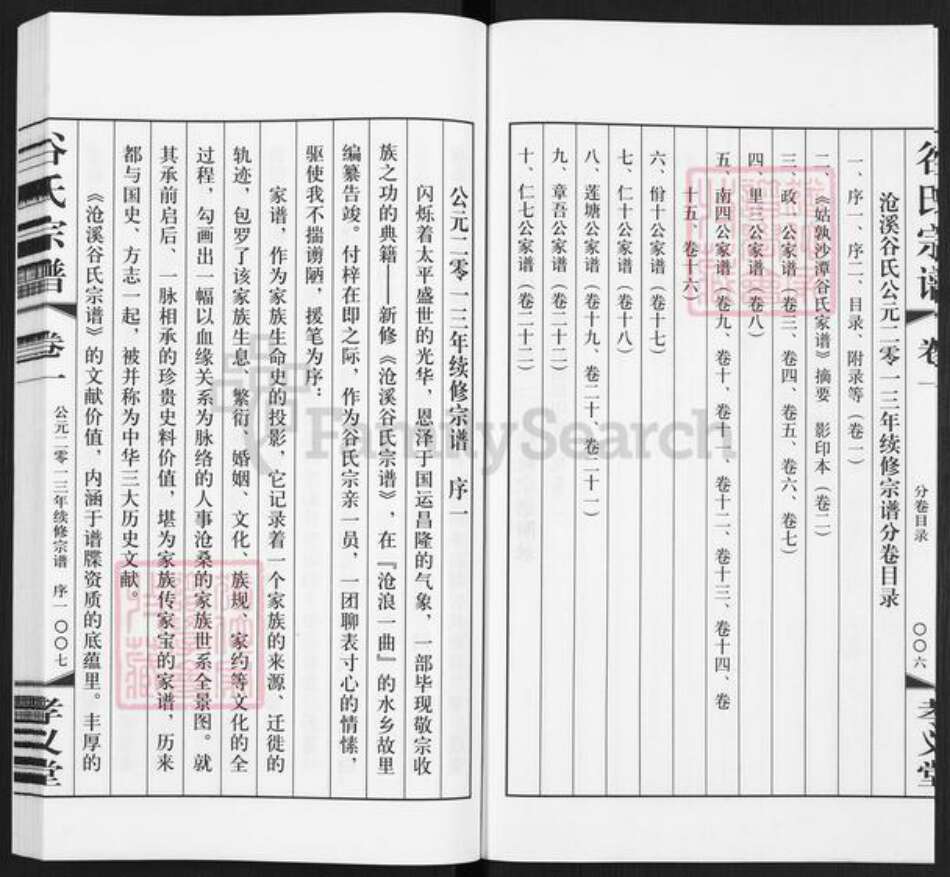 沧溪谷氏公元二零一三年续修宗谱分卷目录
一、序一、序二、目录、附录等（卷一）
二、《姑孰沙潭谷氏家谱》摘要 影印本（卷二）
三、政一公家谱（卷三、卷四、卷五、卷六、卷七）
四、里三公家谱（卷八）
五、南四公家谱（卷九、卷十、卷十一、卷十二、卷十三、卷十四、卷
十五、卷十六）
六、佾十公家谱（卷十七）
七、仁十公家谱（卷十八）
八、莲塘公家谱（卷十九、卷二十、卷二十一）
九、章吾公家谱（卷二十二）
十、仁七公家谱（卷二十二）
分卷目录
〇〇六
孝义堂
公元二零一三年续修宗谱 序一
闪烁着太平盛世的光华，恩泽于国运昌隆的气象，一部毕现敬宗收
族之功的典籍——新修《沧溪谷氏宗谱》，在『沧浪一曲』的水乡故里
编纂告竣。付梓在即之际，作为谷氏宗亲一员，一团聊表寸心的情愫，
驱使我不揣谫陋，援笔为序：
家谱，作为家族生命史的投影，它记录着一个家族的来源、迁徙的
轨迹，包罗了该家族生息、繁衍、婚姻、文化、族规、家约等文化的全
过程，勾画出一幅以血缘关系为脉络的人事沧桑的家族世系全景图。就
其承前启后、一脉相承的珍贵史料价值，堪为家族传家宝的家谱，历来
都与国史、方志一起，被并称为中华三大历史文献。
《沧溪谷氏宗谱》的文献价值，内涵于谱牒资质的底蕴里。丰厚的
谷氏宗谱 卷一
公元二零一三年续修宗谱 序一
〇〇七
孝义堂
FamilySearch